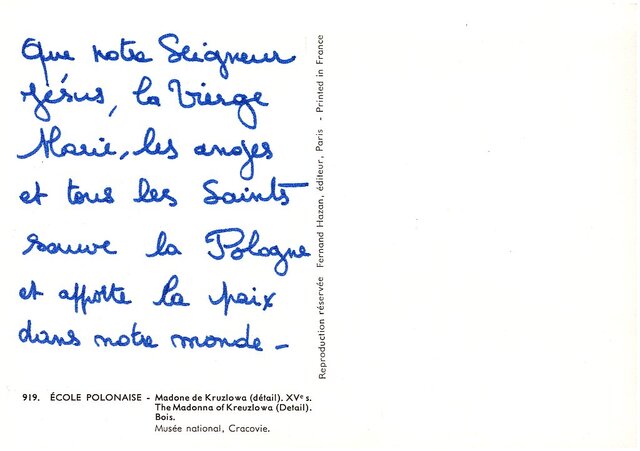 Que notre Seigneur
Jésus, la Vierge
Marie, les anges
et tous les Saints
sauve la Pologne
et apporte la paix
dans notre monde -
919. ÉCOLE POLONAISE - Madone de Kruzlowa (détail). XVe s.
The Madonna of Kreuzlowa (Detail).
Bois.
Musée national, Cracovie.
Reproduction réservée Fernand Hazan, éditeur, Paris - Printed in France